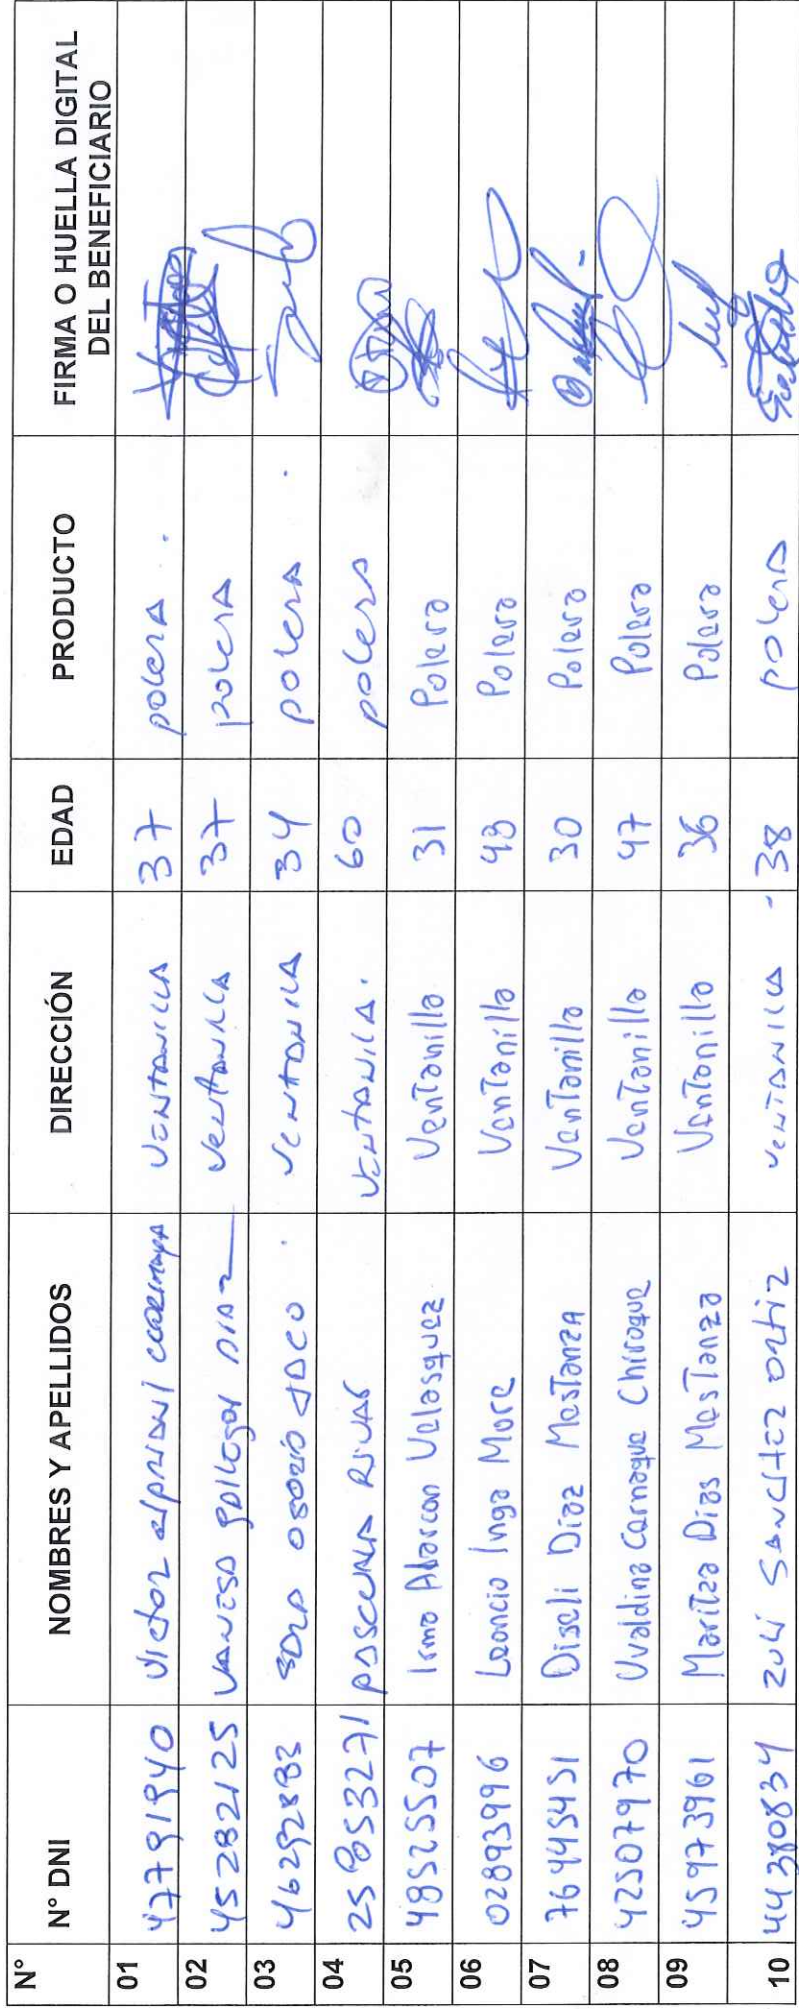 N° N° DNI NOMBRES Y APELLIDOS DIRECCIÓN EDAD PRODUCTO FIRMA O HUELLA DIGITAL
DEL BENEFICIARIO
01 47791940 Victor VENTANILLA 37 polera
02 45282125 VANESA DIAZ VENTANILLA 37 polera
03 OSORIO VENTANILLA 34 polera
04 RIVAS VENTANILA. 60 polera
05 48525507 Irma Abarcan Velasquez Ventanilla 31 Polera
06 02893996 Leoncio Inga More Ventanilla Polera
07 76445451 Diseli Diaz Mestanza Ventanilla 30 Polera
08 42507970 Uvaldina Carnaque Chiroque Ventanilla 47 Polera
09 45973961 Maritza Dias Mestanza Ventanilla 36 Polera
10 44380834 ZULI SANCHEZ ORTIZ VENTANILLA - 38 polera